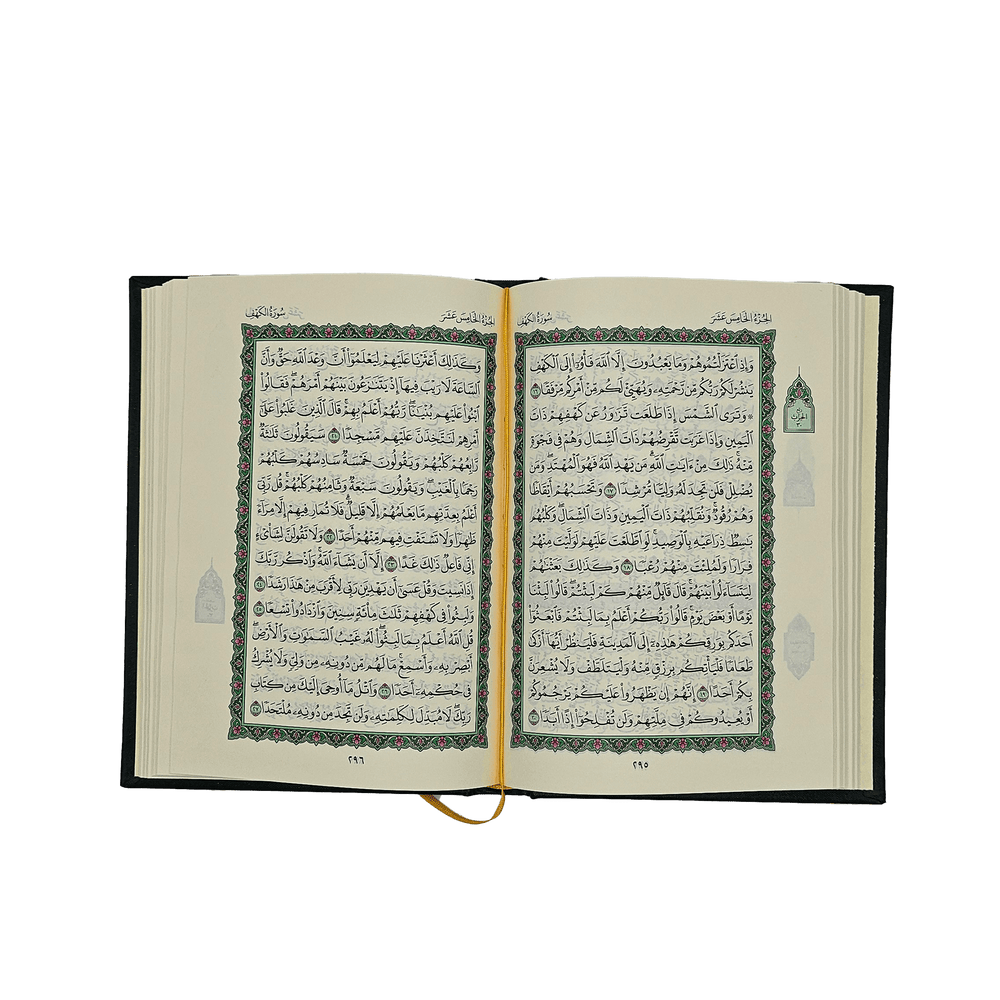 الجزء الخامس عشر
سورة الكهف
وَإِذِ ٱعۡتَزَلۡتُمُوهُمۡ وَمَا يَعۡبُدُونَ إِلَّا ٱللَّهَ فَأۡوُۥٓاْ إِلَى ٱلۡكَهۡفِ
يَنشُرۡ لَكُمۡ رَبُّكُم مِّن رَّحۡمَتِهِۦ وَيُهَيِّئۡ لَكُم مِّنۡ أَمۡرِكُم مِّرۡفَقٗا ١٦
۞ وَتَرَى ٱلشَّمۡسَ إِذَا طَلَعَت تَّزَٰوَرُ عَن كَهۡفِهِمۡ ذَاتَ
ٱلۡيَمِينِ وَإِذَا غَرَبَت تَّقۡرِضُهُمۡ ذَاتَ ٱلشِّمَالِ وَهُمۡ فِي فَجۡوَةٖ
مِّنۡهُۚ ذَٰلِكَ مِنۡ ءَايَٰتِ ٱللَّهِۗ مَن يَهۡدِ ٱللَّهُ فَهُوَ ٱلۡمُهۡتَدِۖ وَمَن
يُضۡلِلۡ فَلَن تَجِدَ لَهُۥ وَلِيّٗا مُّرۡشِدٗا ١٧ وَتَحۡسَبُهُمۡ أَيۡقَاظٗا
وَهُمۡ رُقُودٞۚ وَنُقَلِّبُهُمۡ ذَاتَ ٱلۡيَمِينِ وَذَاتَ ٱلشِّمَالِۖ وَكَلۡبُهُم
بَٰسِطٞ ذِرَاعَيۡهِ بِٱلۡوَصِيدِۚ لَوِ ٱطَّلَعۡتَ عَلَيۡهِمۡ لَوَلَّيۡتَ مِنۡهُمۡ
فِرَارٗا وَلَمُلِئۡتَ مِنۡهُمۡ رُعۡبٗا ١٨ وَكَذَٰلِكَ بَعَثۡنَٰهُمۡ
لِيَتَسَآءَلُواْ بَيۡنَهُمۡۚ قَالَ قَآئِلٞ مِّنۡهُمۡ كَمۡ لَبِثۡتُمۡۖ قَالُواْ لَبِثۡنَا
يَوۡمًا أَوۡ بَعۡضَ يَوۡمٖۚ قَالُواْ رَبُّكُمۡ أَعۡلَمُ بِمَا لَبِثۡتُمۡ فَٱبۡعَثُوٓاْ
أَحَدَكُم بِوَرِقِكُمۡ هَٰذِهِۦٓ إِلَى ٱلۡمَدِينَةِ فَلۡيَنظُرۡ أَيُّهَآ أَزۡكَىٰ
طَعَامٗا فَلۡيَأۡتِكُم بِرِزۡقٖ مِّنۡهُ وَلۡيَتَلَطَّفۡ وَلَا يُشۡعِرَنَّ
بِكُمۡ أَحَدًا ١٩ إِنَّهُمۡ إِن يَظۡهَرُواْ عَلَيۡكُمۡ يَرۡجُمُوكُمۡ
أَوۡ يُعِيدُوكُمۡ فِي مِلَّتِهِمۡ وَلَن تُفۡلِحُوٓاْ إِذًا أَبَدٗا ٢٠
٢٩٥
الجزء الخامس عشر
سورة الكهف
وَكَذَٰلِكَ أَعۡثَرۡنَا عَلَيۡهِمۡ لِيَعۡلَمُوٓاْ أَنَّ وَعۡدَ ٱللَّهِ حَقّٞ وَأَنَّ
ٱلسَّاعَةَ لَا رَيۡبَ فِيهَآ إِذۡ يَتَنَٰزَعُونَ بَيۡنَهُمۡ أَمۡرَهُمۡۖ فَقَالُواْ
ٱبۡنُواْ عَلَيۡهِم بُنۡيَٰنٗاۖ رَّبُّهُمۡ أَعۡلَمُ بِهِمۡۚ قَالَ ٱلَّذِينَ غَلَبُواْ عَلَىٰٓ
أَمۡرِهِمۡ لَنَتَّخِذَنَّ عَلَيۡهِم مَّسۡجِدٗا ٢١ سَيَقُولُونَ ثَلَٰثَةٞ
رَّابِعُهُمۡ كَلۡبُهُمۡ وَيَقُولُونَ خَمۡسَةٞ سَادِسُهُمۡ كَلۡبُهُمۡ
رَجۡمَۢا بِٱلۡغَيۡبِۖ وَيَقُولُونَ سَبۡعَةٞ وَثَامِنُهُمۡ كَلۡبُهُمۡۚ قُل رَّبِّيٓ
أَعۡلَمُ بِعِدَّتِهِم مَّا يَعۡلَمُهُمۡ إِلَّا قَلِيلٞۗ فَلَا تُمَارِ فِيهِمۡ إِلَّا مِرَآءٗ
ظَٰهِرٗا وَلَا تَسۡتَفۡتِ فِيهِم مِّنۡهُمۡ أَحَدٗا ٢٢ وَلَا تَقُولَنَّ لِشَاْيۡءٍ
إِنِّي فَاعِلٞ ذَٰلِكَ غَدًا ٢٣ إِلَّآ أَن يَشَآءَ ٱللَّهُۚ وَٱذۡكُر رَّبَّكَ
إِذَا نَسِيتَ وَقُلۡ عَسَىٰٓ أَن يَهۡدِيَنِ رَبِّي لِأَقۡرَبَ مِنۡ هَٰذَا رَشَدٗا ٢٤
وَلَبِثُواْ فِي كَهۡفِهِمۡ ثَلَٰثَ مِاْئَةٖ سِنِينَ وَٱزۡدَادُواْ تِسۡعٗا ٢٥
قُلِ ٱللَّهُ أَعۡلَمُ بِمَا لَبِثُواْۖ لَهُۥ غَيۡبُ ٱلسَّمَٰوَٰتِ وَٱلۡأَرۡضِۖ
أَبۡصِرۡ بِهِۦ وَأَسۡمِعۡۚ مَا لَهُم مِّن دُونِهِۦ مِن وَلِيّٖ وَلَا يُشۡرِكُ
فِي حُكۡمِهِۦٓ أَحَدٗا ٢٦ وَٱتۡلُ مَآ أُوحِيَ إِلَيۡكَ مِن كِتَابِ
رَبِّكَۖ لَا مُبَدِّلَ لِكَلِمَٰتِهِۦ وَلَن تَجِدَ مِن دُونِهِۦ مُلۡتَحَدٗا ٢٧
٢٩٦